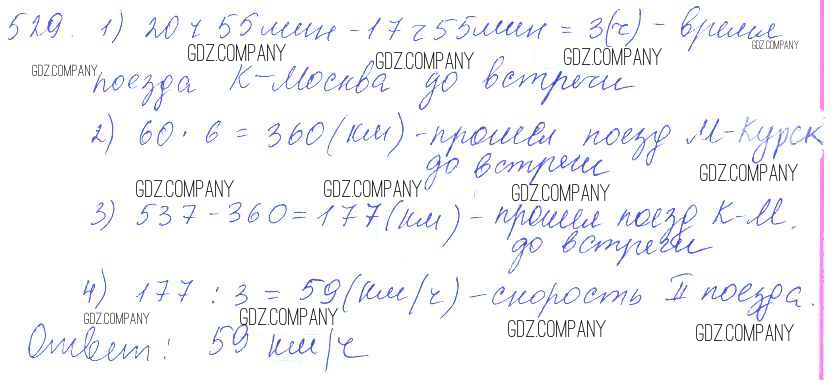 529. 1) 20 ч 55 мин - 17 ч 55 мин = 3 (ч) - время
поезда К-Москва до встречи
2) 60 · 6 = 360 (км) - прошел поезд М-Курск
до встречи
3) 537 - 360 = 177 (км) - прошел поезд К-М.
до встречи
4) 177 : 3 = 59 (км/ч) - скорость II поезда.
Ответ: 59 км/ч
GDZ.COMPANY
GDZ.COMPANY
GDZ.COMPANY
GDZ.COMPANY
GDZ.COMPANY
GDZ.COMPANY
GDZ.COMPANY
GDZ.COMPANY
GDZ.COMPANY
GDZ.COMPANY
GDZ.COMPANY
GDZ.COMPANY
GDZ.COMPANY